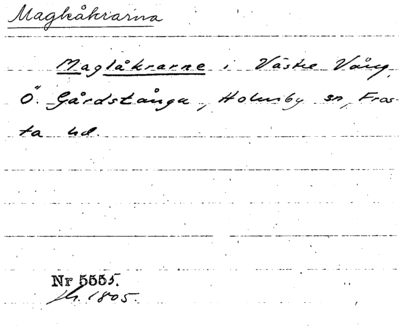 Magleåkrarna
Maglåkrarne i Västre Vång,
Ö. Gårdstånga, Holmby sn, Fros-
ta hd.
Nr 5555.
1805.